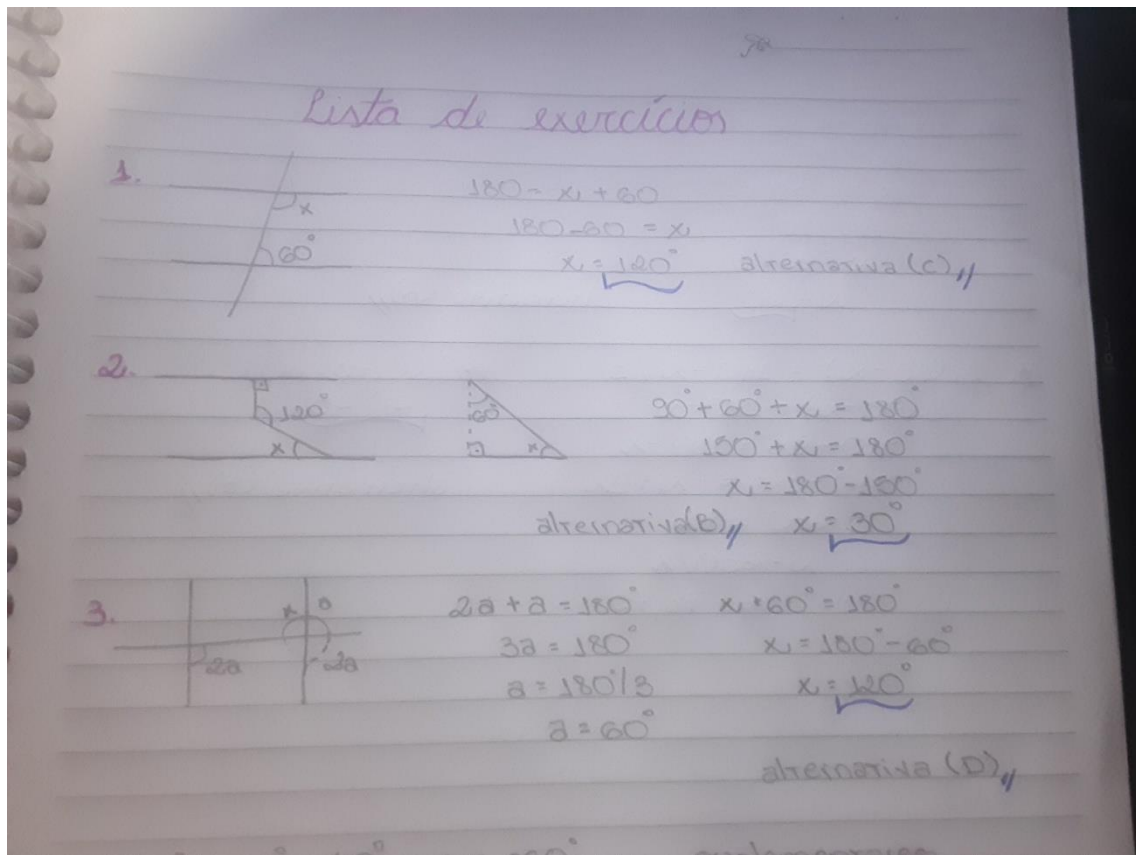 Lista de exercícios
1.
x
60°
180 = x + 60
180 - 60 = x
x = 120° alternativa (C)
2.
120°
x
60°
x
90° + 60° + x = 180°
150° + x = 180°
x = 180° - 150°
alternativa (B) x = 30°
3.
x a
2a 2a
2a + a = 180° x + 60° = 180°
3a = 180° x = 180° - 60°
a = 180°/3 x = 120°
a = 60°
alternativa (D)